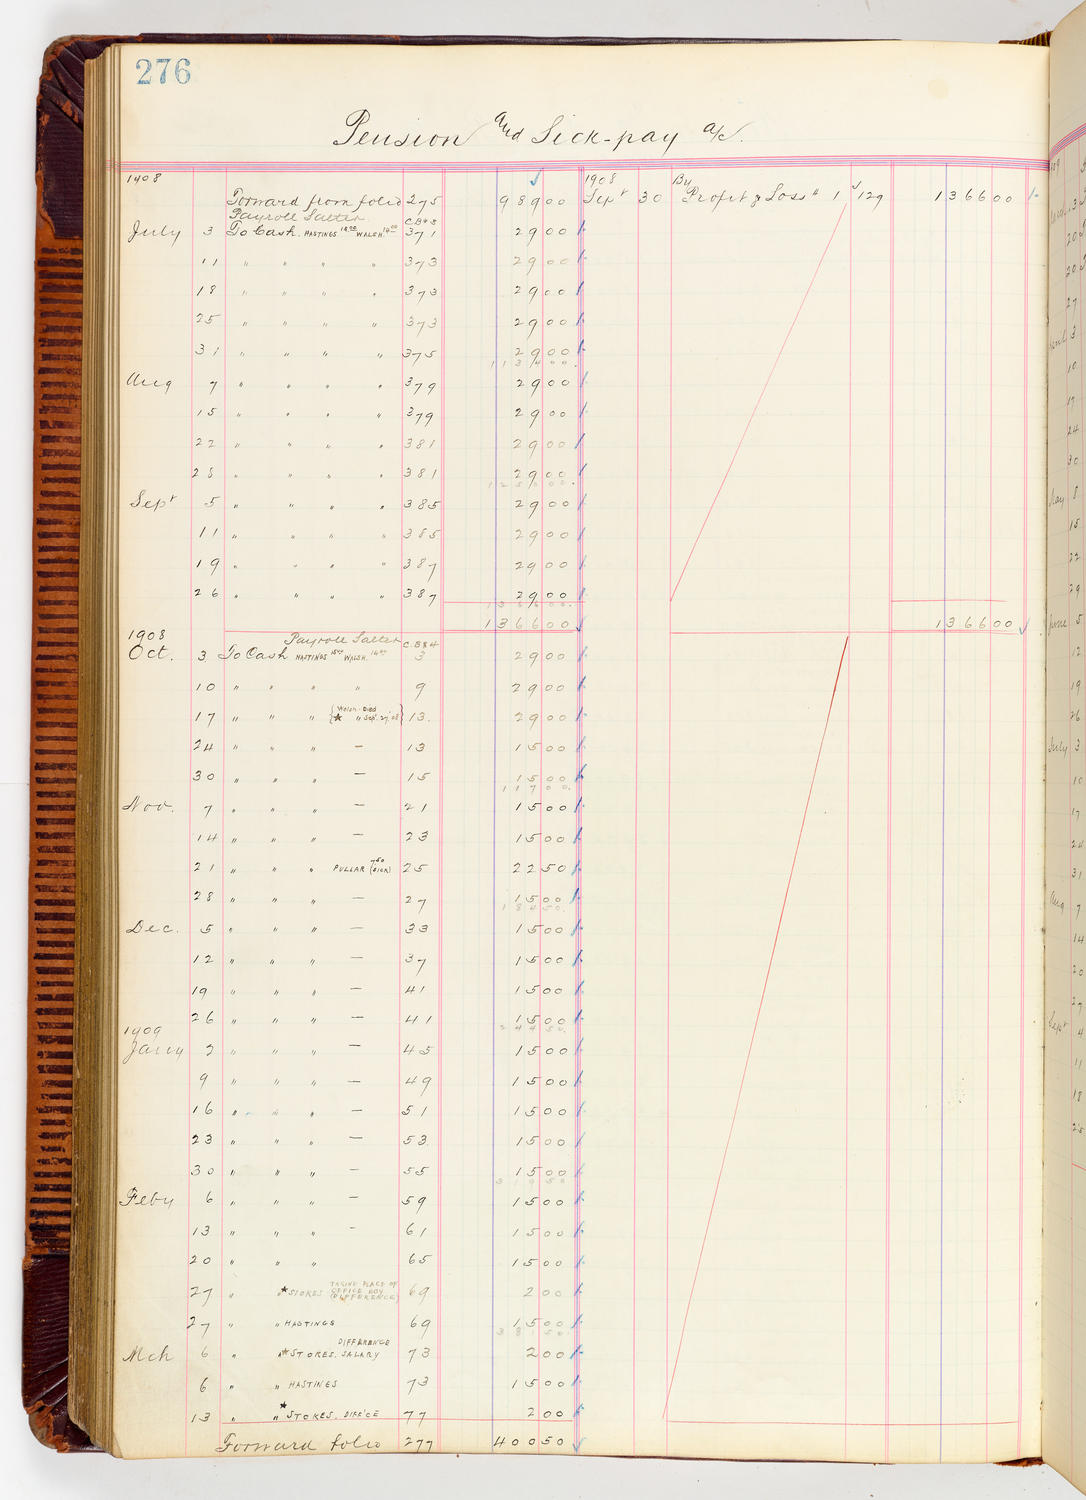 276
Pension and Sick-pay a/c.
1908 1908 By
Forward from folio 275 98900 Sept 30 Profit & Loss a/c 1 129 136600
Payroll Salter C.B#3
July 3 To Cash. HASTINGS 15.00 WALSH 14.00 371 2900
11 " " " " 373 2900
18 " " " " 373 2900
25 " " " " 373 2900
31 " " " " 375 2900
113400
Aug 7 " " " " 379 2900
15 " " " " 379 2900
22 " " " " 381 2900
28 " " " " 381 2900
125000
Sept 5 " " " " 385 2900
11 " " " " 385 2900
19 " " " " 387 2900
26 " " " " 387 2900
136600
136600 136600
1908 Payroll Salter C.B#4
Oct. 3 To Cash HASTINGS 15.00 WALSH 14.00 3 2900
10 " " " " 9 2900
17 " " " {Welsh Died ★ " Sept. 27, 08} 13. 2900
24 " " " — 13 1500
30 " " " — 15 1500
11700.
Nov. 7 " " " — 21 1500
14 " " " — 23 1500
21 " " " PULLAR (7.50 SICK) 25 2250
28 " " " — 27 1500
18450.
Dec. 5 " " " — 33 1500
12 " " " — 37 1500
19 " " " — 41 1500
26 " " " — 41 1500
24450.
1909
Jany 2 " " " — 45 1500
9 " " " — 49 1500
16 " " " — 51 1500
23 " " " — 53 1500
30 " " " — 55 1500
31950
Feby 6 " " " — 59 1500
13 " " " — 61 1500
20 " " " 65 1500
27 " " ★STOKES TAKING PLACE OF OFFICE BOY (DIFFERENCE) 69 200
27 " " HASTINGS 69 1500
38150.
DIFFERENCE
Mch 6 " " ★STOKES. SALARY 73 200
6 " " HASTINGS 73 1500
13 " " ★STOKES. DIFF'CE 77 200
Forward folio 277 40050